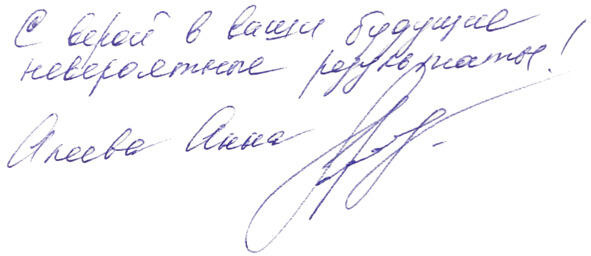 С верой в ваши будущие
невероятные результаты!
Агеева Анна